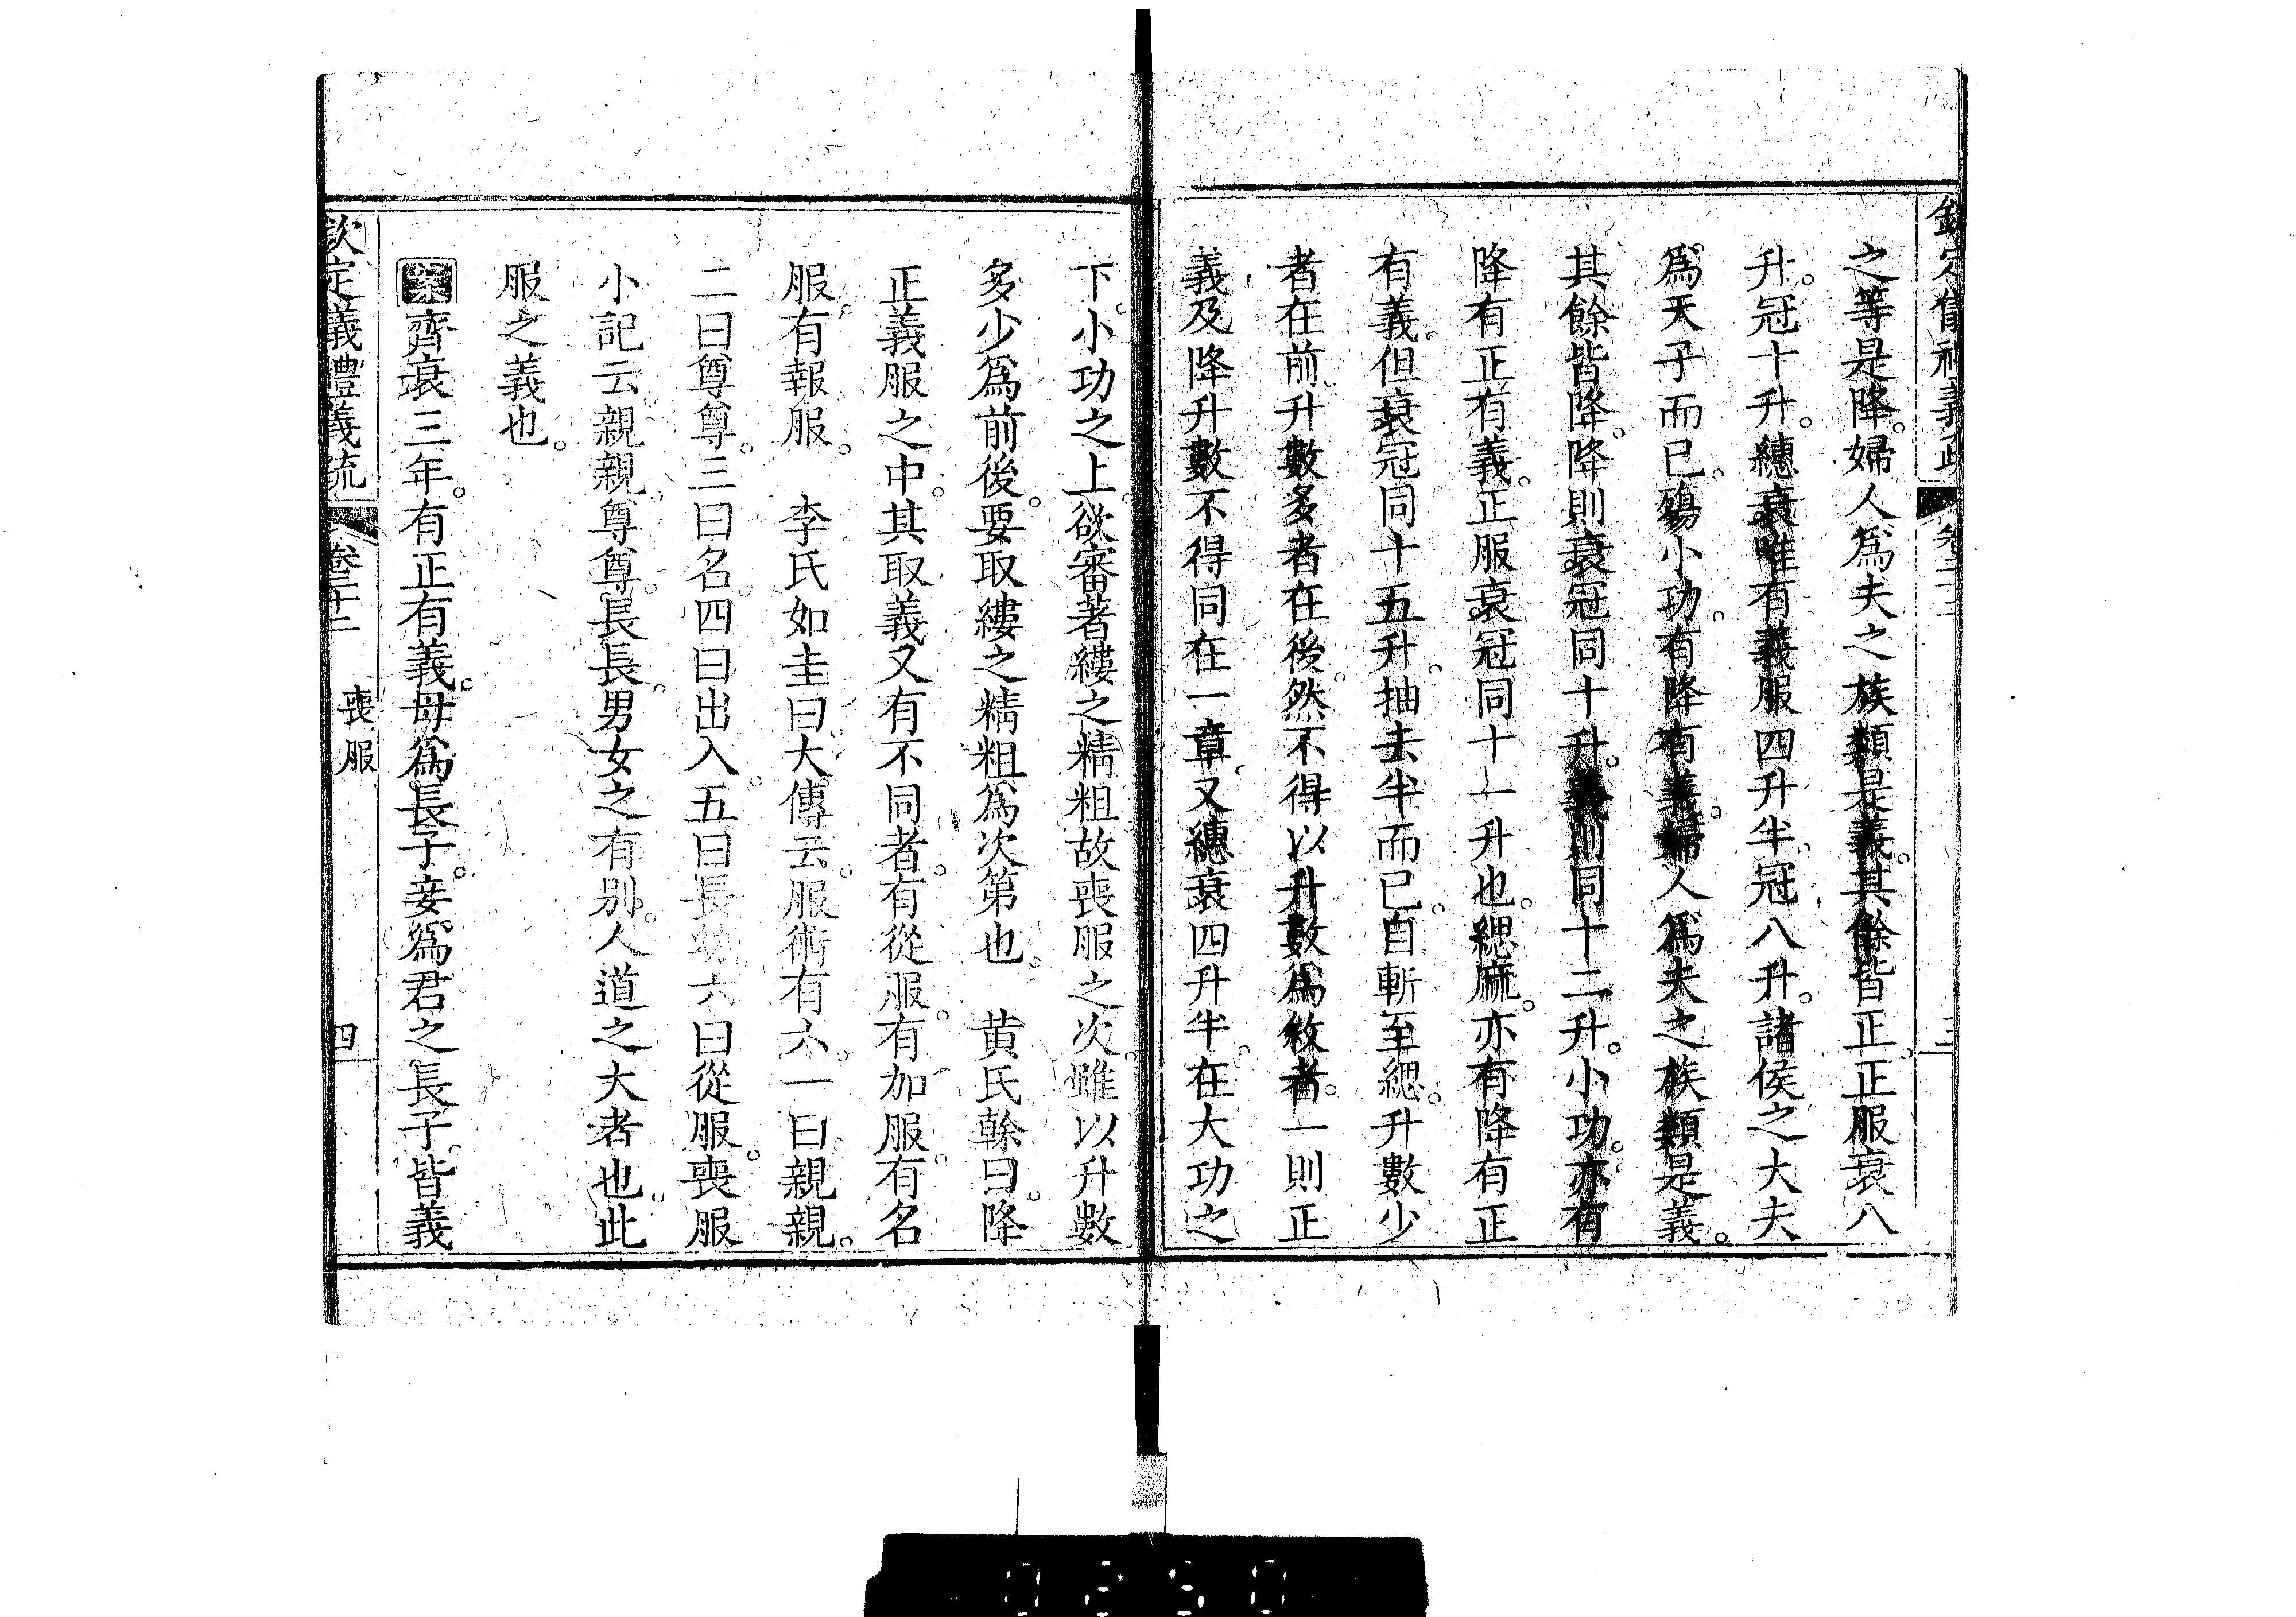 欽定儀禮義疏 卷二十二 三
之等是降。婦人爲夫之族類是義。其餘皆正。正服衰八
升。冠十升。繐衰唯有義服四升半。冠八升。諸侯之大夫
爲天子而已。殤小功。有降有義。婦人爲夫之族類是義。
其餘皆降。降則衰冠同十升。義則同十二升。小功。亦有
降有正有義。正服衰冠同十一升也。緦麻。亦有降有正
有義。但衰冠同十五升。抽去半而已。自斬至緦。升數少
者在前。升數多者在後。然不得以升數爲敘者。一則正
義及降升數不得同在一章。又繐衰四升半。在大功之
下。小功之上。欲審著縷之精粗故喪服之次。雖以升數
多少爲前後。要取縷之精粗爲次第也。 黄氏榦曰。降
正義服之中。其取義又有不同者。有從服。有加服。有名
服。有報服。 李氏如圭曰。大傳云。服術有六。一曰親親。
二曰尊尊。三曰名。四曰出入。五曰長幼。六曰從服。喪服
小記云。親親。尊尊。長長。男女之有别。人道之大者也。此
服之義也。
案齊衰三年。有正有義。母爲長子。妾爲君之長子。皆義
欽定義禮義疏 卷二十二 喪服 四